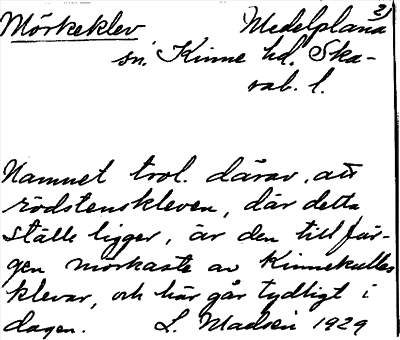 3)
Mörkeklev Medelplana
sn. Kinne hd. Ska-
rab. l.
Namnet trol. därav, att
rödstenskleven, där detta
ställe ligger, är den till fär-
gen mörkaste av Kinnekulles
klevar, och här går tydligt i
dagen. L. Madsén 1929